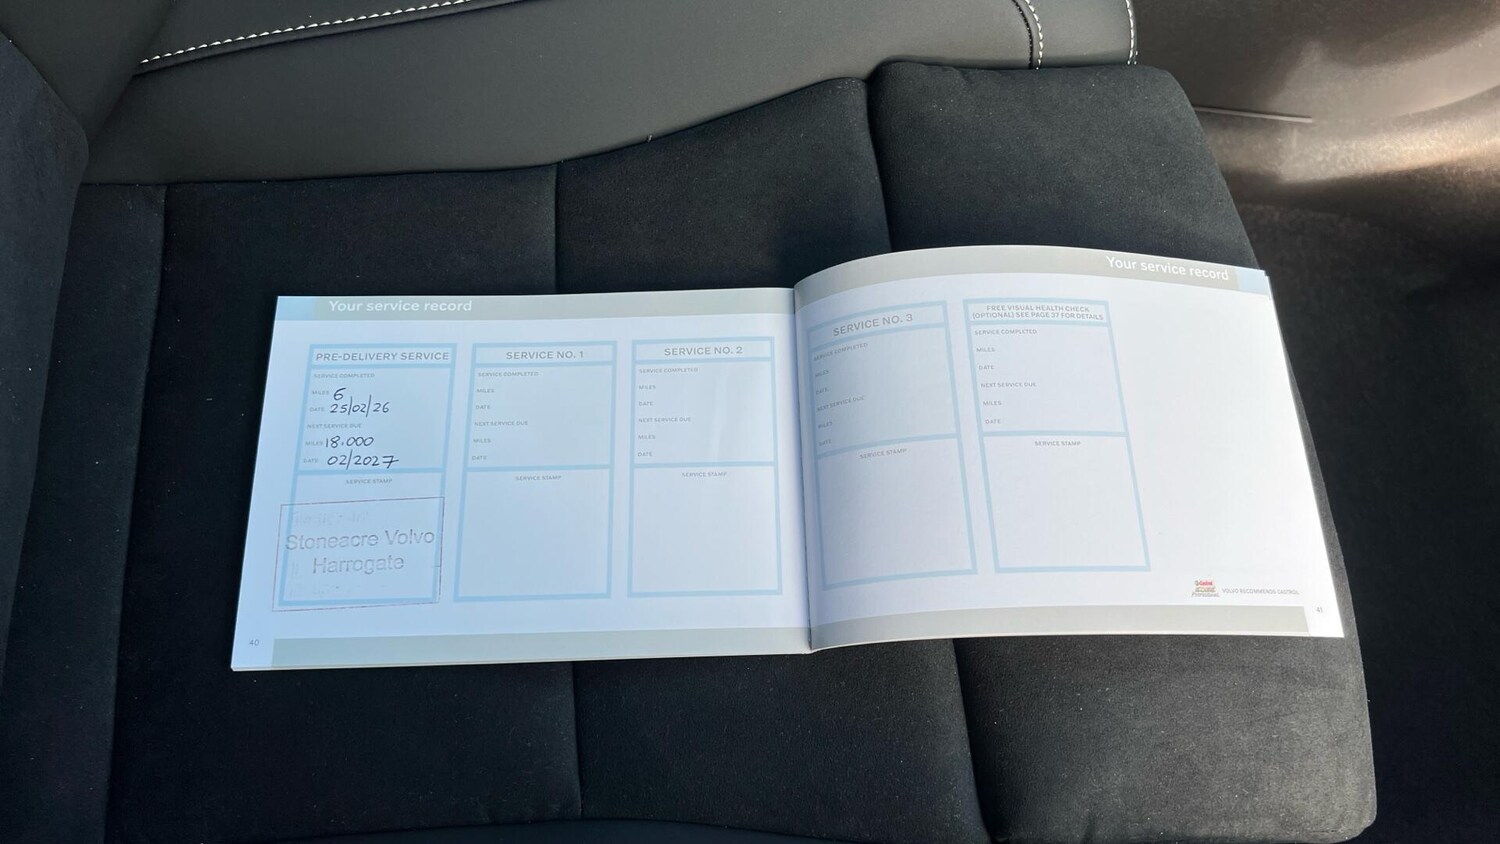 Your service record
PRE-DELIVERY SERVICE
SERVICE COMPLETED
MILES 6
DATE 25/02/26
NEXT SERVICE DUE
MILES 18.000
DATE 02/2027
SERVICE STAMP
Stoneacre Volvo
Harrogate
SERVICE NO. 1
SERVICE COMPLETED
MILES
DATE
NEXT SERVICE DUE
MILES
DATE
SERVICE STAMP
SERVICE NO. 2
SERVICE COMPLETED
MILES
DATE
NEXT SERVICE DUE
MILES
DATE
SERVICE STAMP
40
Your service record
SERVICE NO. 3
SERVICE COMPLETED
MILES
DATE
NEXT SERVICE DUE
MILES
DATE
SERVICE STAMP
FREE VISUAL HEALTH CHECK
(OPTIONAL) SEE PAGE 37 FOR DETAILS
SERVICE COMPLETED
MILES
DATE
NEXT SERVICE DUE
MILES
DATE
SERVICE STAMP
Castrol
VOLVO RECOMMENDS CASTROL
41